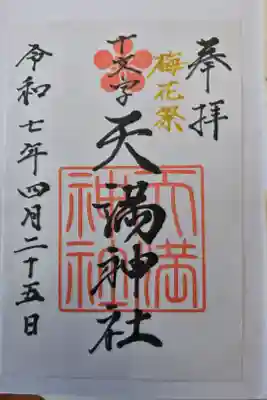 奉拝
梅花祭
十文字
天満神社
天満
神社
令和七年四月二十五日